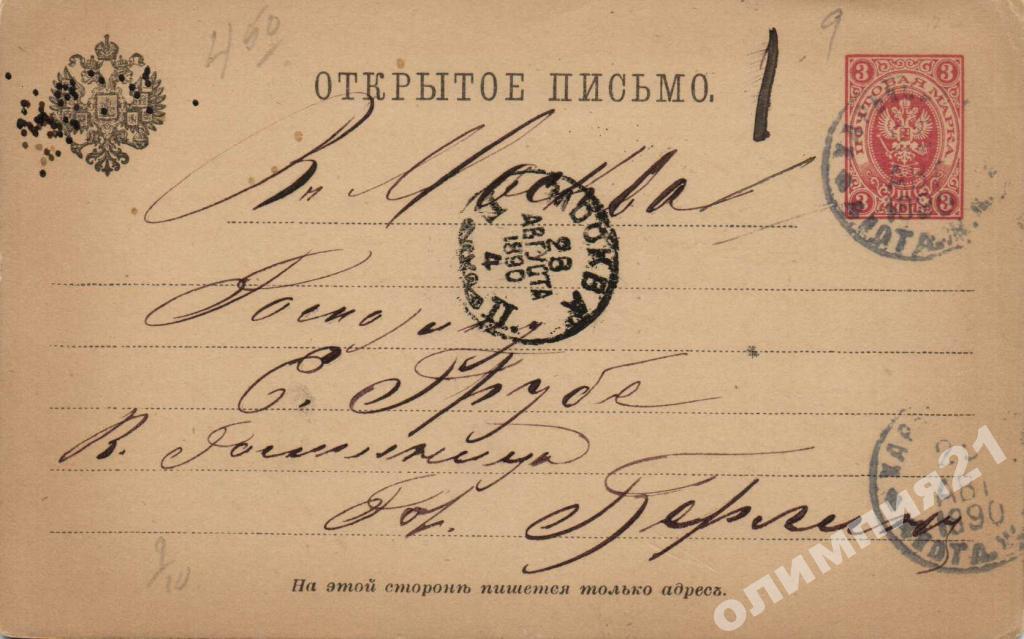 4 60
9
ОТКРЫТОЕ ПИСЬМО.
3 3
ПОЧТОВАЯ МАРКА
3 КОП. 3
Въ Москва
МОСКВА
28
АВГУСТА
1890
4
II
Господину
Е. Грубе
В. Гостинница
Гор. Берлинъ
ХАР
АВГ
1890
ПОЧТА
На этой сторонѣ пишется только адресъ.
олимпия21